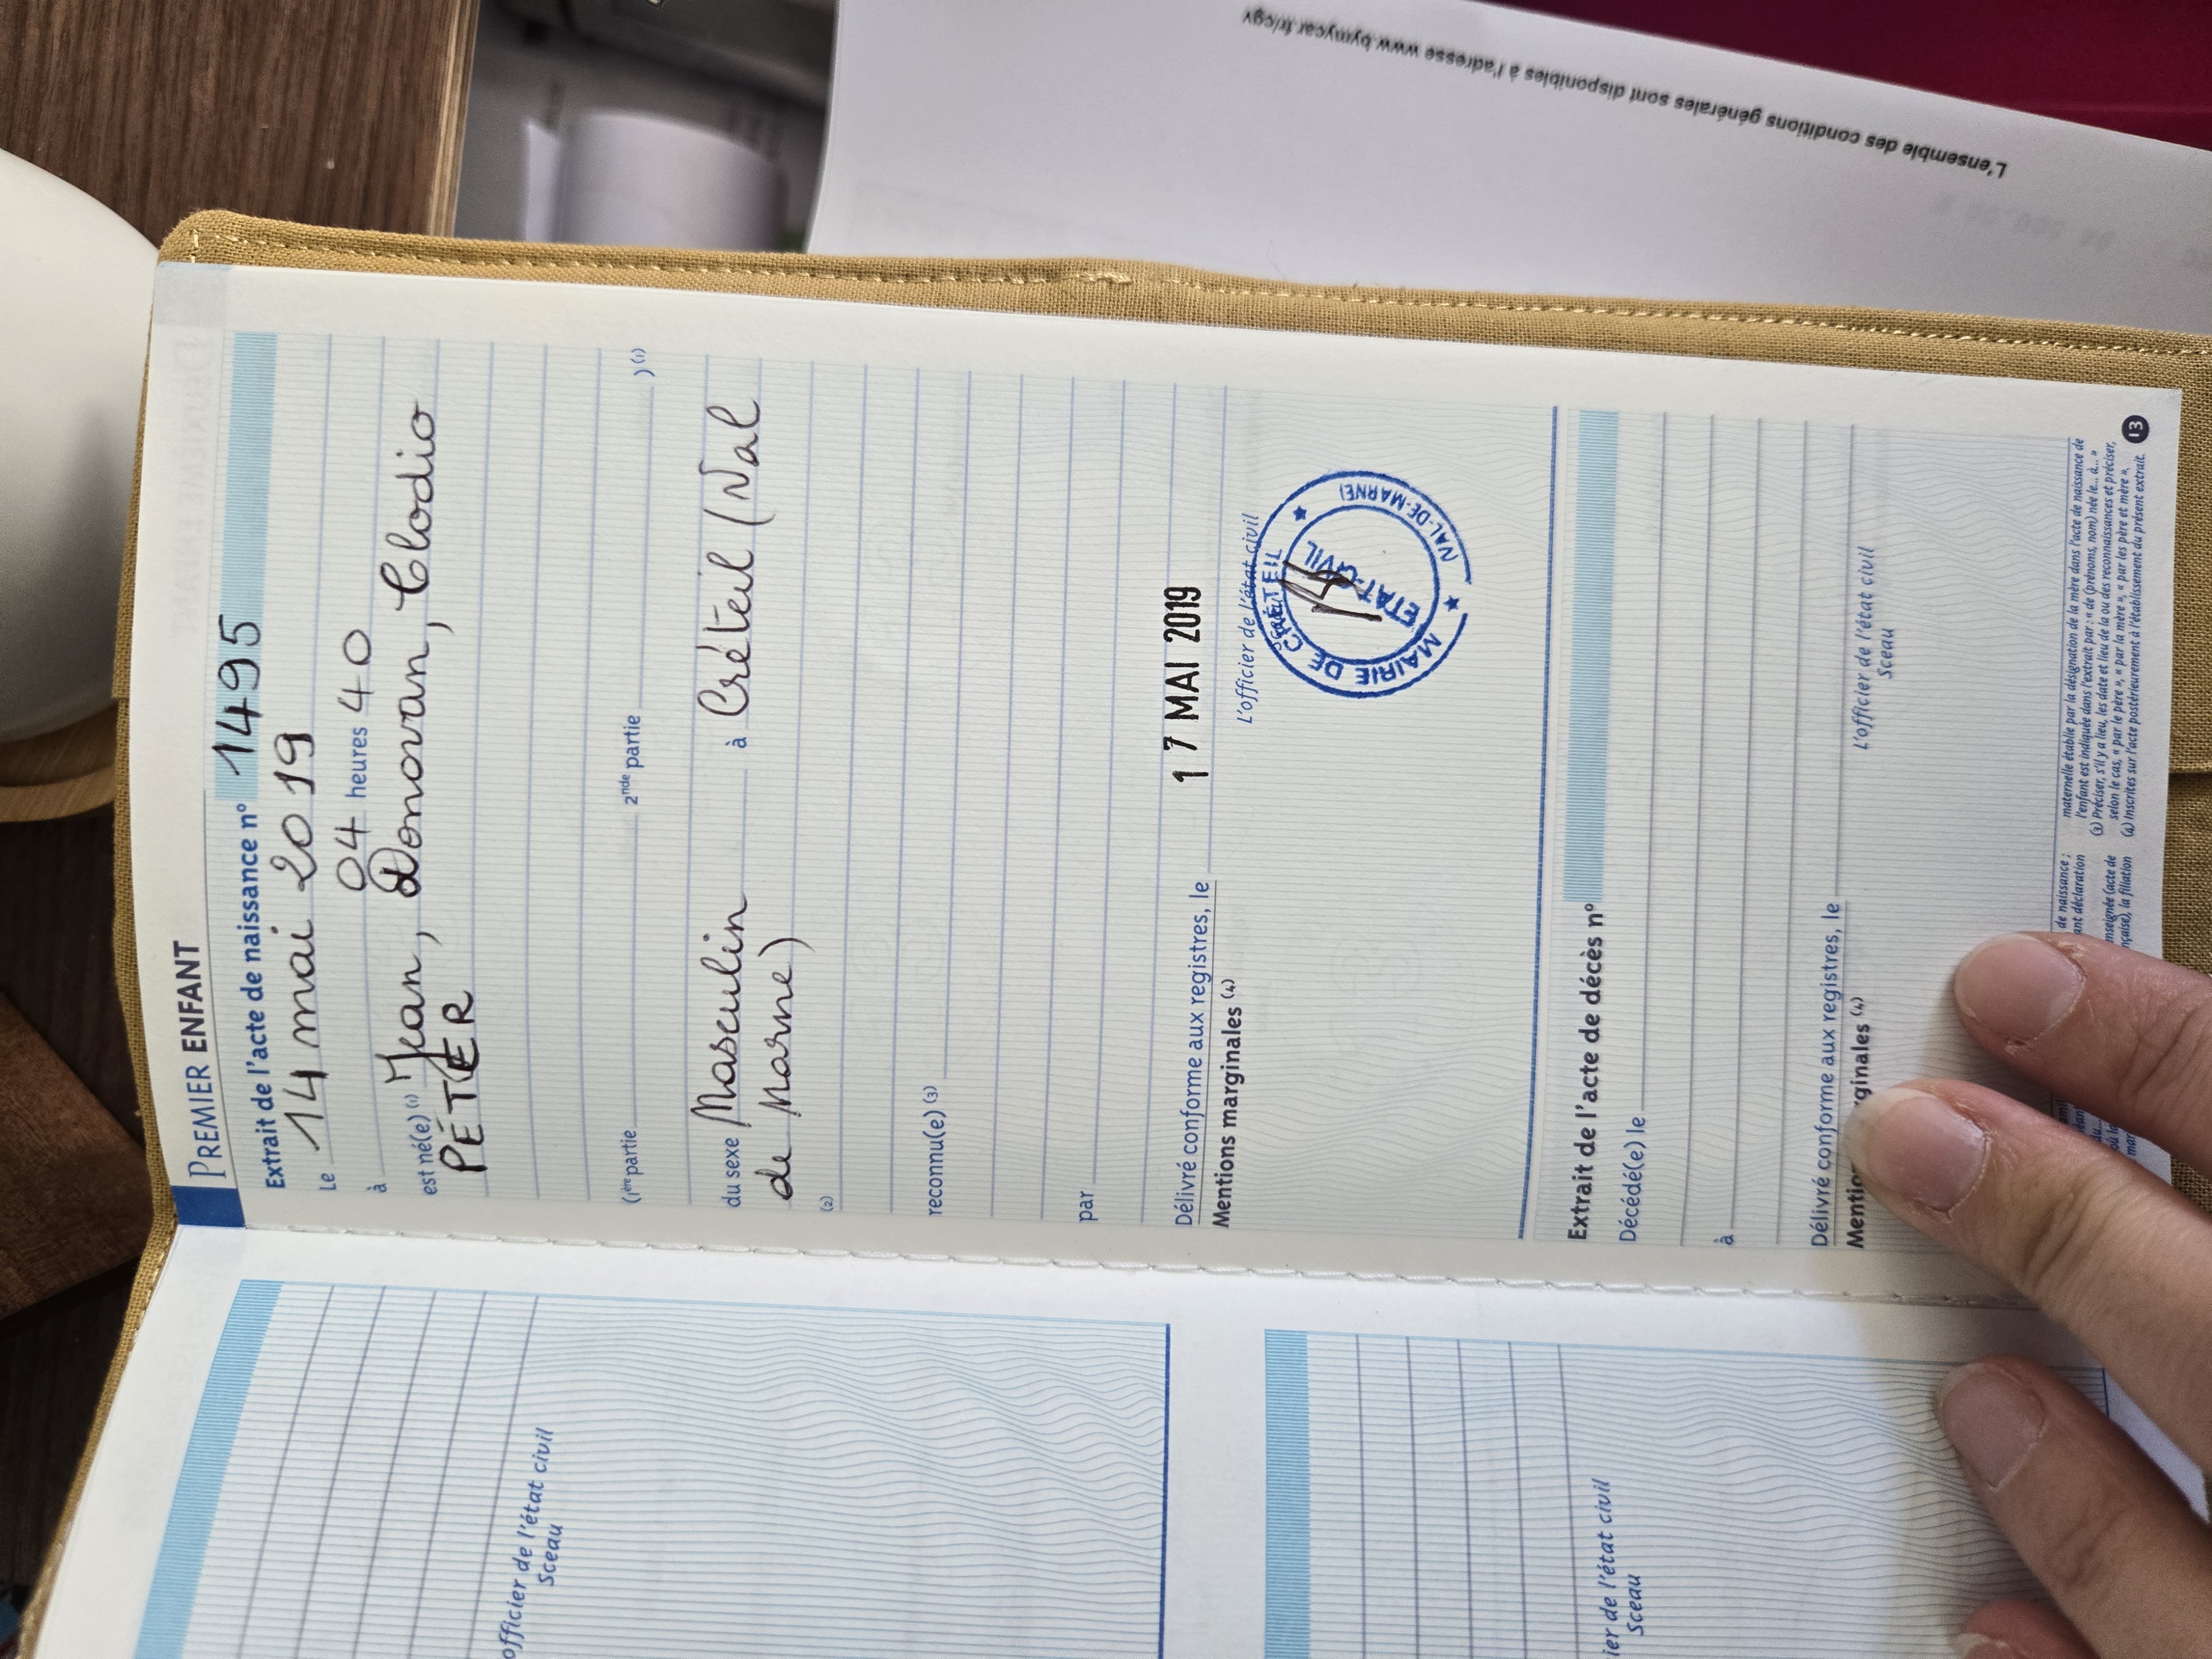 L'ensemble des conditions générales sont disponibles à l'adresse www.bymycar.fr/cgv
PREMIER ENFANT
Extrait de l'acte de naissance n° 1495
Le 14 mai 2019
à 04 heures 40
est né(e) (1) Jean, Donovan, Clodio
PETER
(1ère partie 2nde partie ) (1)
du sexe Masculin à Créteil (Val
de Marne)
(2)
reconnu(e) (3)
par
Délivré conforme aux registres, le 17 MAI 2019
Mentions marginales (4)
L'officier de l'état civil
Sceau
MAIRIE DE CRÉTEIL
(VAL-DE-MARNE)
ETAT-CIVIL
Extrait de l'acte de décès n°
Décédé(e) le
à
Délivré conforme aux registres, le
L'officier de l'état civil
Sceau
de naissance ;
ant déclaration
maternelle établie par la désignation de la mère dans l'acte de naissance de
l'enfant est indiquée dans l'extrait par : « de (prénoms, nom) née le... à... »
(3) Préciser, s'il y a lieu, les date et lieu de la ou des reconnaissances et préciser,
selon le cas, « par le père », « par la mère », « par les père et mère ».
(4) Inscrites sur l'acte postérieurement à l'établissement du présent extrait.
13
officier de l'état civil
Sceau
ier de l'état civil
Sceau